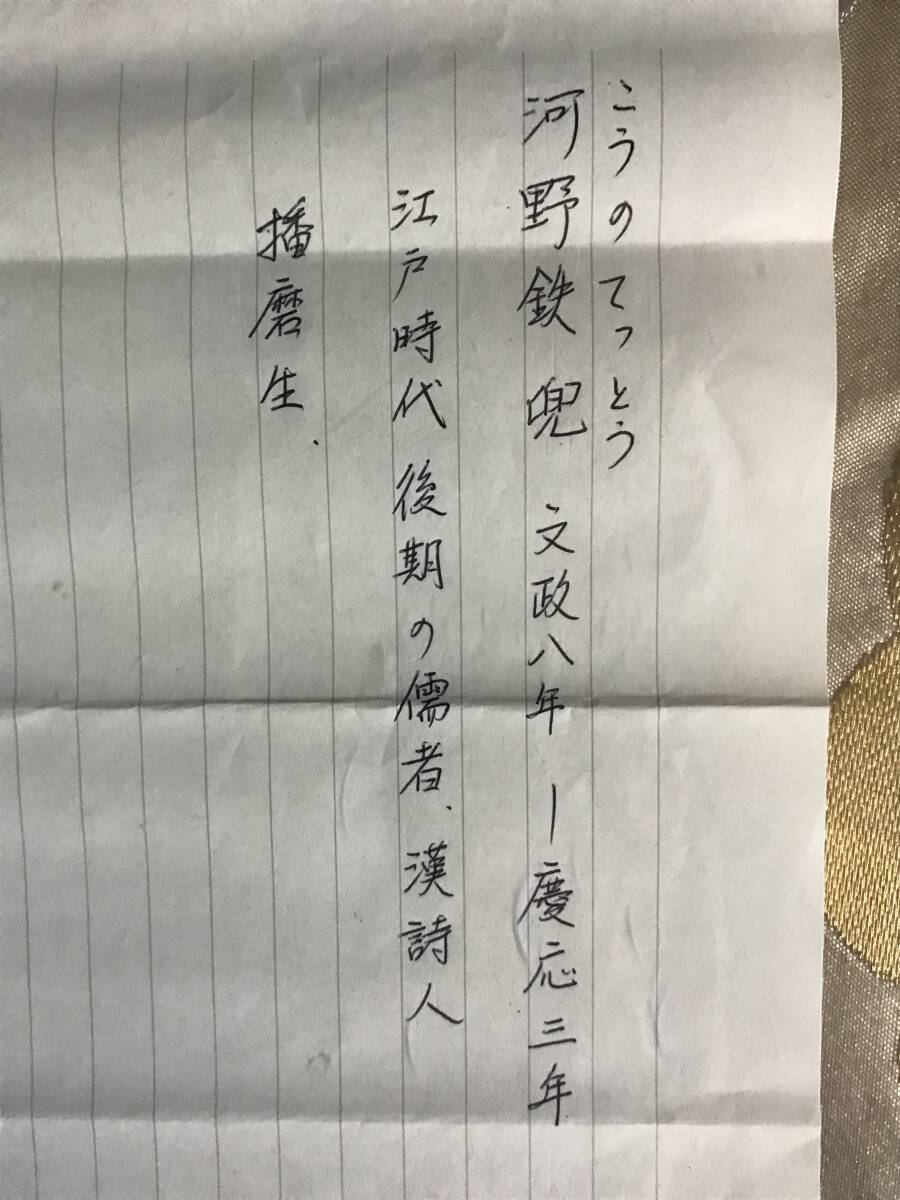 こうのてっとう
河野鉄兜 文政八年 ー慶応三年
江戸時代後期の儒者、漢詩人
播磨生、